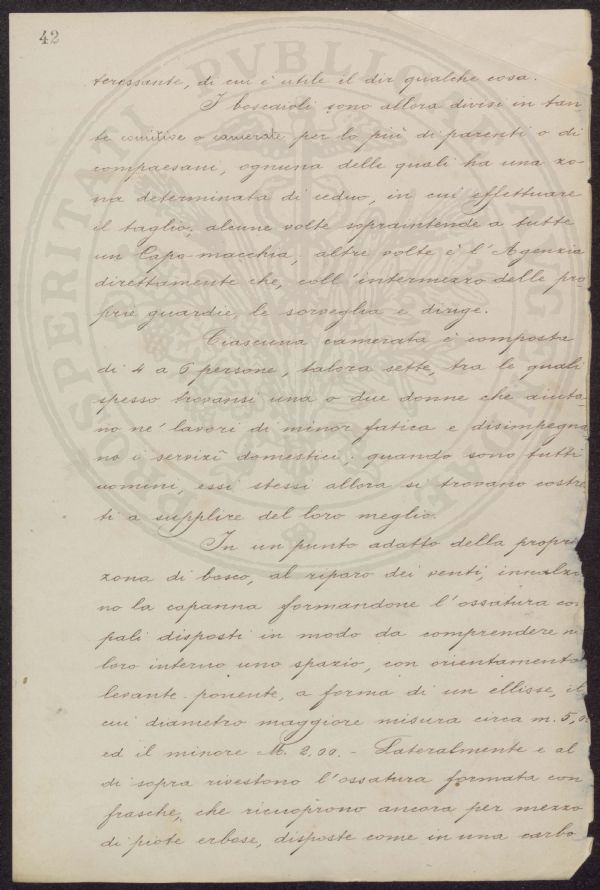 42
teressante, di cui è utile il dir qualche cosa.
I boscaioli sono allora divisi in tan-
te comitive o camerate per lo più di parenti o di
compaesani, ognuna delle quali ha una zo-
na determinata di ceduo, in cui effettuare
il taglio; alcune volte sopraintende a tutte
un Capo-macchia, altre volte è l'Agenzia
direttamente che, coll'intermezzo delle pro
prie guardie, le sorveglia e dirige.
Ciascuna camerata è composta
di 4 a 6 persone, talora sette, tra le quali
spesso trovansi una o due donne che aiuta-
no ne' lavori di minor fatica e disimpegna
no i servizî domestici; quando sono tutti
uomini, essi stessi allora si trovano costret
ti a supplire del loro meglio.
In un punto adatto della propri
zona di bosco, al riparo dei venti, innalza
no la capanna formandone l'ossatura con
pali disposti in modo da comprendere n
loro interno uno spazio, con orientamento
levante-ponente, a forma di un ellisse, il
cui diametro maggiore misura circa m. 5,0
ed il minore M. 2,00. - Lateralmente e al
di sopra rivestono l'ossatura formata con
frasche, che ricuoprono ancora per mezzo
di piote erbose, disposte come in una carbo
PROSPERITATI PVBLICAE AVGENDAE